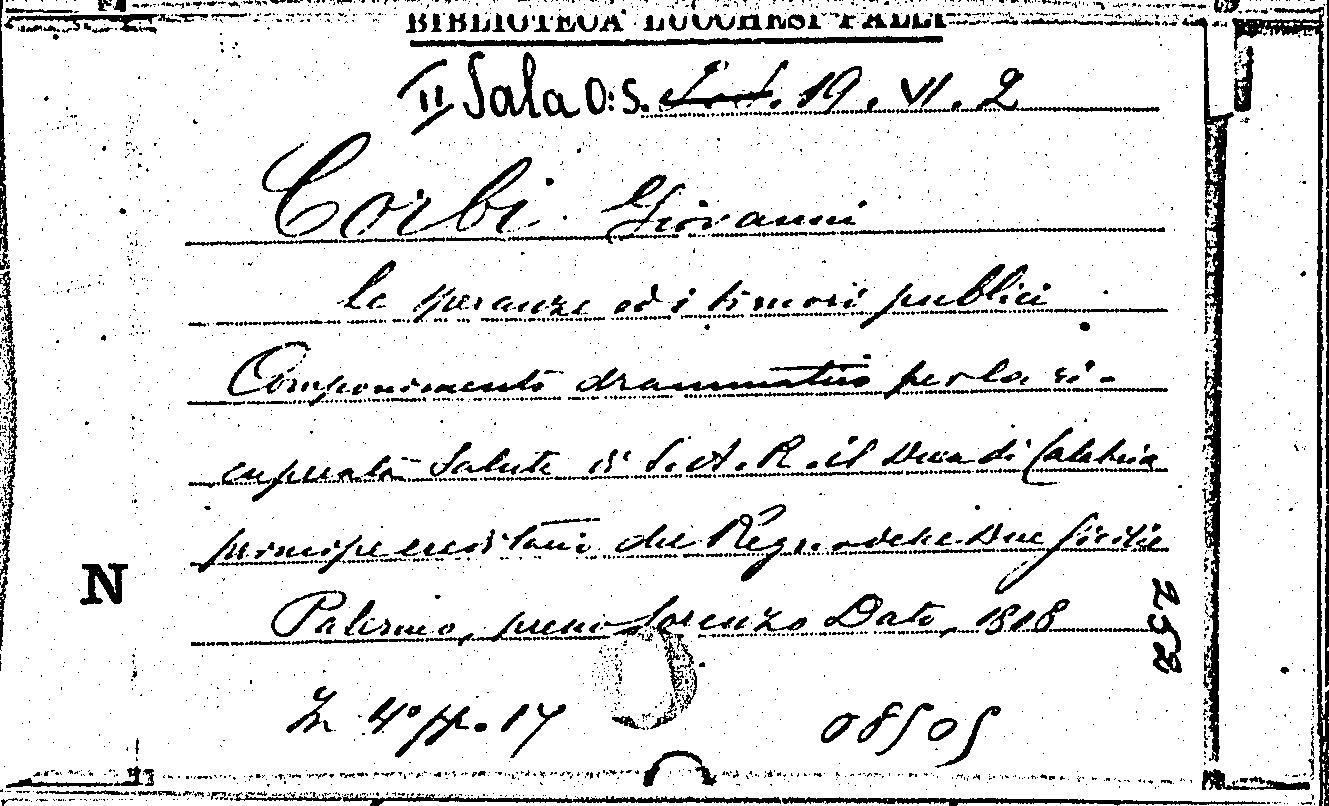 BIBLIOTECA LUCCHESI PALLI
II Sala O:S. 19. VI. 2
Corbi Giovanni
le speranze ed i timori publici
Componimento drammatico per la ri-
cuperata salute di S. A. R. il Duca di Calabria
principe ereditario del Regno delle Due Sicilie
Palermo, presso Lorenzo Dato, 1818
In 4° pp. 17
08505
N
252